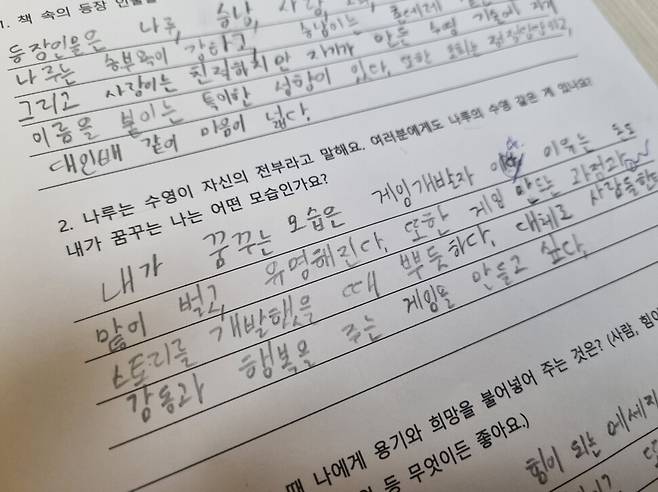 1. 책 속의 등장 인물
등장인물은 나루, 승남, 사랑
나루는 승부욕이 강하고, 승남이는
그리고 사랑이는 친절하지만 자기가 만든 수영 기술에 자기
이름을 붙이는 특이한 성향이 있다. 또한 정정당당하고,
대인배 같이 마음이 넓다.
2. 나루는 수영이 자신의 전부라고 말해요. 여러분에게도 나루의 수영 같은 게 있나요?
내가 꿈꾸는 나는 어떤 모습인가요?
내가 꿈꾸는 모습은 게임개발자 이유는 돈도
많이 벌고, 유명해진다. 또한 게임 만드는 과정과
스토리를 개발했을 때 뿌듯하다. 대체로 사람들한테
감동과 행복을 주는 게임을 만들고 싶다.
때 나에게 용기와 희망을 불어넣어 주는 것은? (사람, 힘이
등 무엇이든 좋아요.)
힘이 되는 메세지